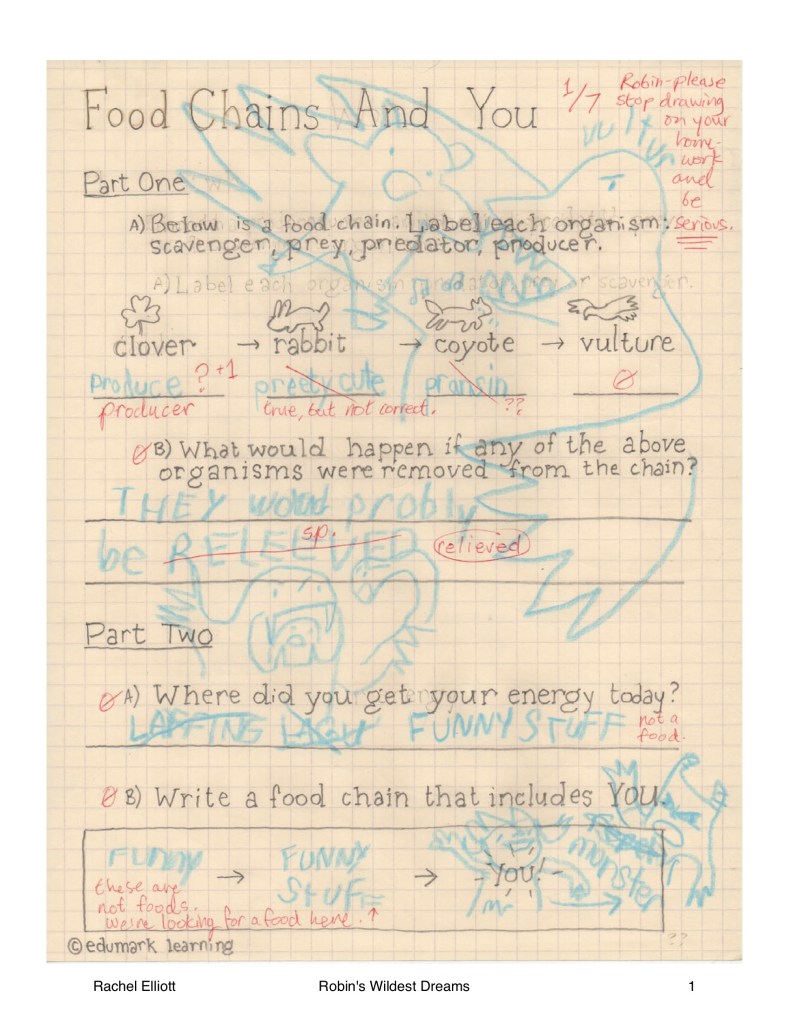 Food Chains And You
1/7
Robin-please
stop drawing
on your
home-
work
and
be
serious.
vultur
Part One
A) Below is a food chain. Label each organism:
scavenger, prey, predator, producer.
A) Label each organism predator, prey or scavenger.
clover → rabbit → coyote → vulture
produce ? +1 preety cute pransin 0
producer true, but not correct. ??
0 B) What would happen if any of the above
organisms were removed from the chain?
THEY woud probly
be RELEIVED sp. relieved
Part Two
0 A) Where did you get your energy today?
LAFFING LAGH FUNNY STUFF not a
food.
0 B) Write a food chain that includes YOU.
FUNNY → FUNNY STUFF → YOU!
monster
these are
not foods.
We're looking for a food here. ↑
??
© edumark learning
Rachel Elliott Robin's Wildest Dreams 1